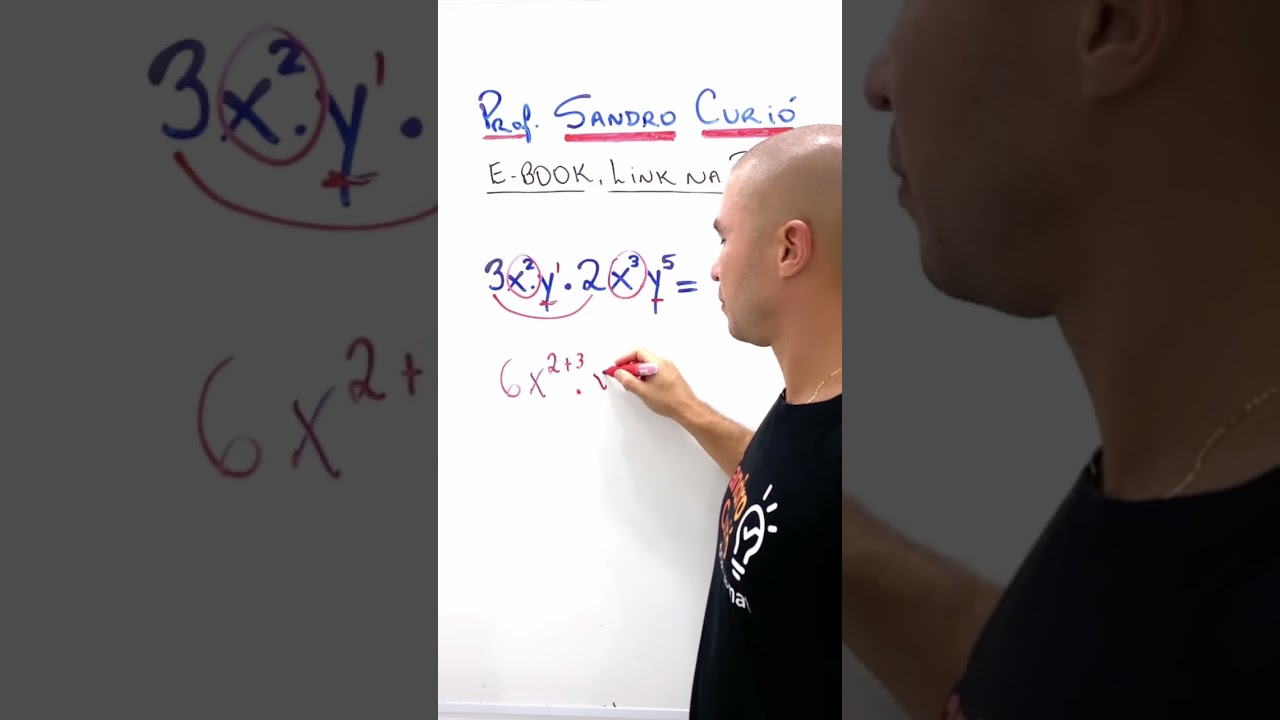 Prof. SANDRO CURIÓ
E-BOOK, LINK NA
3x².y¹.2x³y⁵=
6x²⁺³.